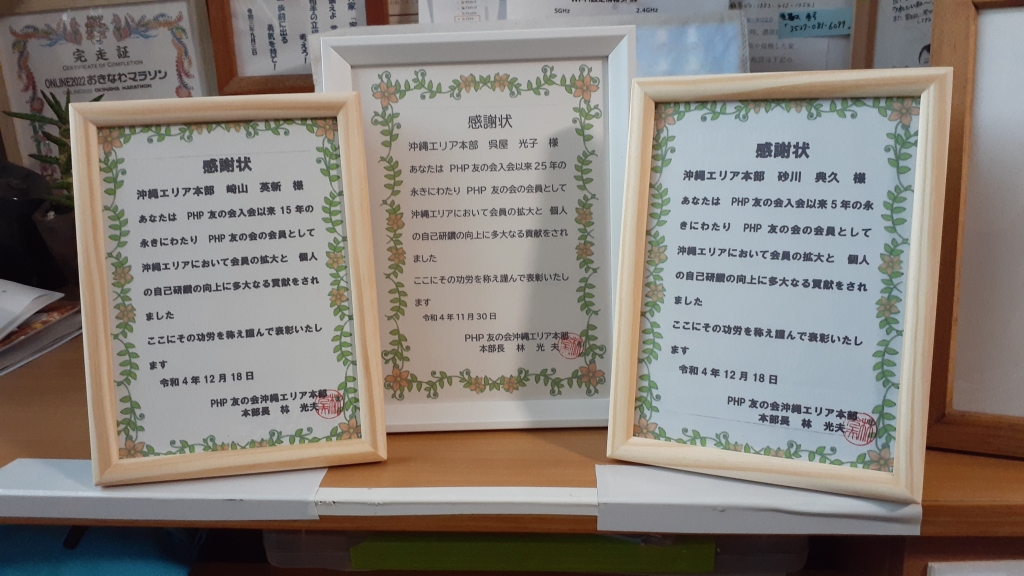 完走証
CERTIFICATE OF COMPLETION
ONLINE2022おきなわマラソン
OKINAWA MARATHON
5GHz
2.4GHz
感謝状
沖縄エリア本部 崎山 英新 様
あなたは PHP友の会入会以来15年の
永きにわたり PHP友の会の会員として
沖縄エリアにおいて会員の拡大と 個人
の自己研鑽の向上に多大なる貢献をされ
ました
ここにその功労を称え謹んで表彰いたし
ます
令和4年12月18日
PHP友の会沖縄エリア本部
本部長 林 光夫
感謝状
沖縄エリア本部 呉屋 光子 様
あなたは PHP友の会入会以来25年の
永きにわたり PHP友の会の会員として
沖縄エリアにおいて会員の拡大と 個人
の自己研鑽の向上に多大なる貢献をされ
ました
ここにその功労を称え謹んで表彰いたし
ます
令和4年11月30日
PHP友の会沖縄エリア本部
本部長 林 光夫
感謝状
沖縄エリア本部 砂川 典久 様
あなたは PHP友の会入会以来5年の永
きにわたり PHP友の会の会員として
沖縄エリアにおいて会員の拡大と 個人
の自己研鑽の向上に多大なる貢献をされ
ました
ここにその功労を称え謹んで表彰いたし
ます
令和4年12月18日
PHP友の会沖縄エリア本部
本部長 林 光夫